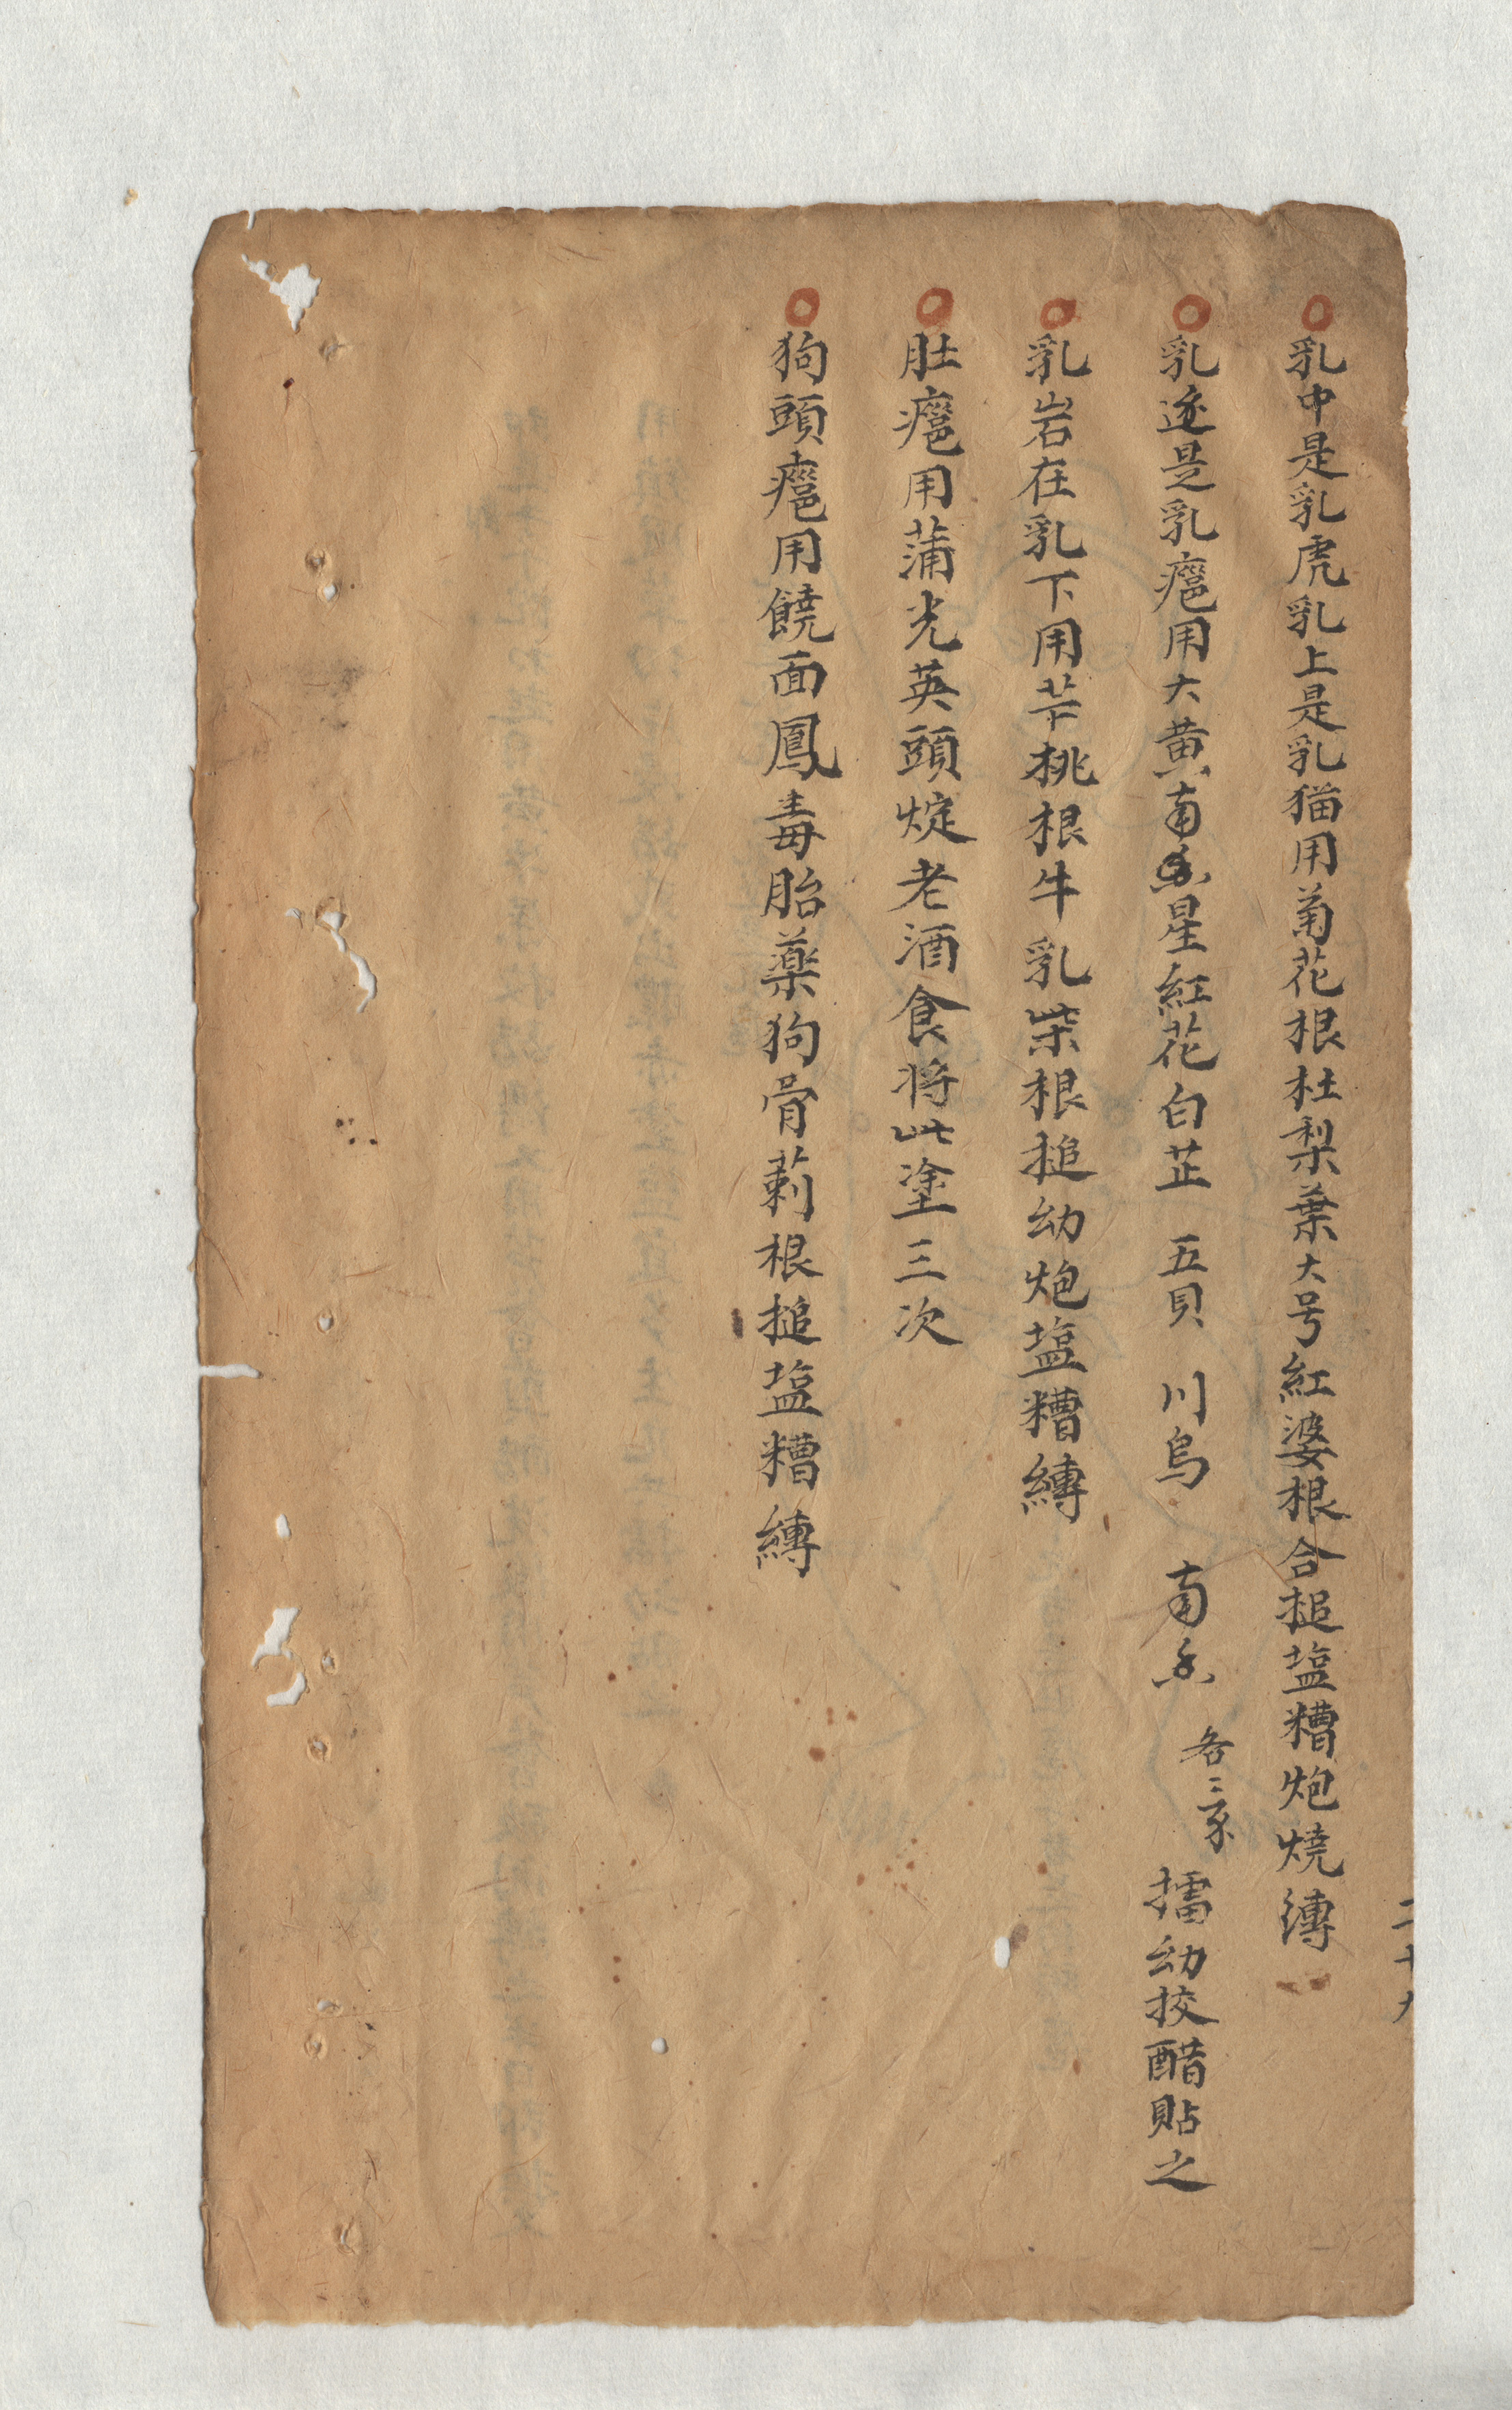 二十九
○乳中是乳虎乳上是乳猫用菊花根杜梨葉大号紅婆根合搥塩糟炮燒縳
○乳邊是乳癰用大黄南星紅花白芷 五貝 川烏 南香 各二錢 擂幼挍醋貼之
○乳岩在乳下用苄桃根牛乳柴根搥幼炮塩糟縳
○肚癰用蒲光英頭煡老酒食将此塗三次
○狗頭癰用饒面鳳毒胎藥狗骨莿根搥塩糟縳